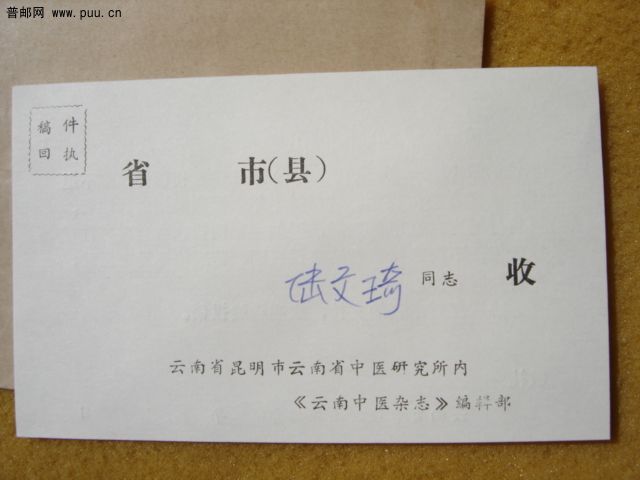 普邮网 www.puu.cn
稿件
回执
省 市(县)
陆文琦 同志 收
云南省昆明市云南省中医研究所内
《云南中医杂志》编辑部